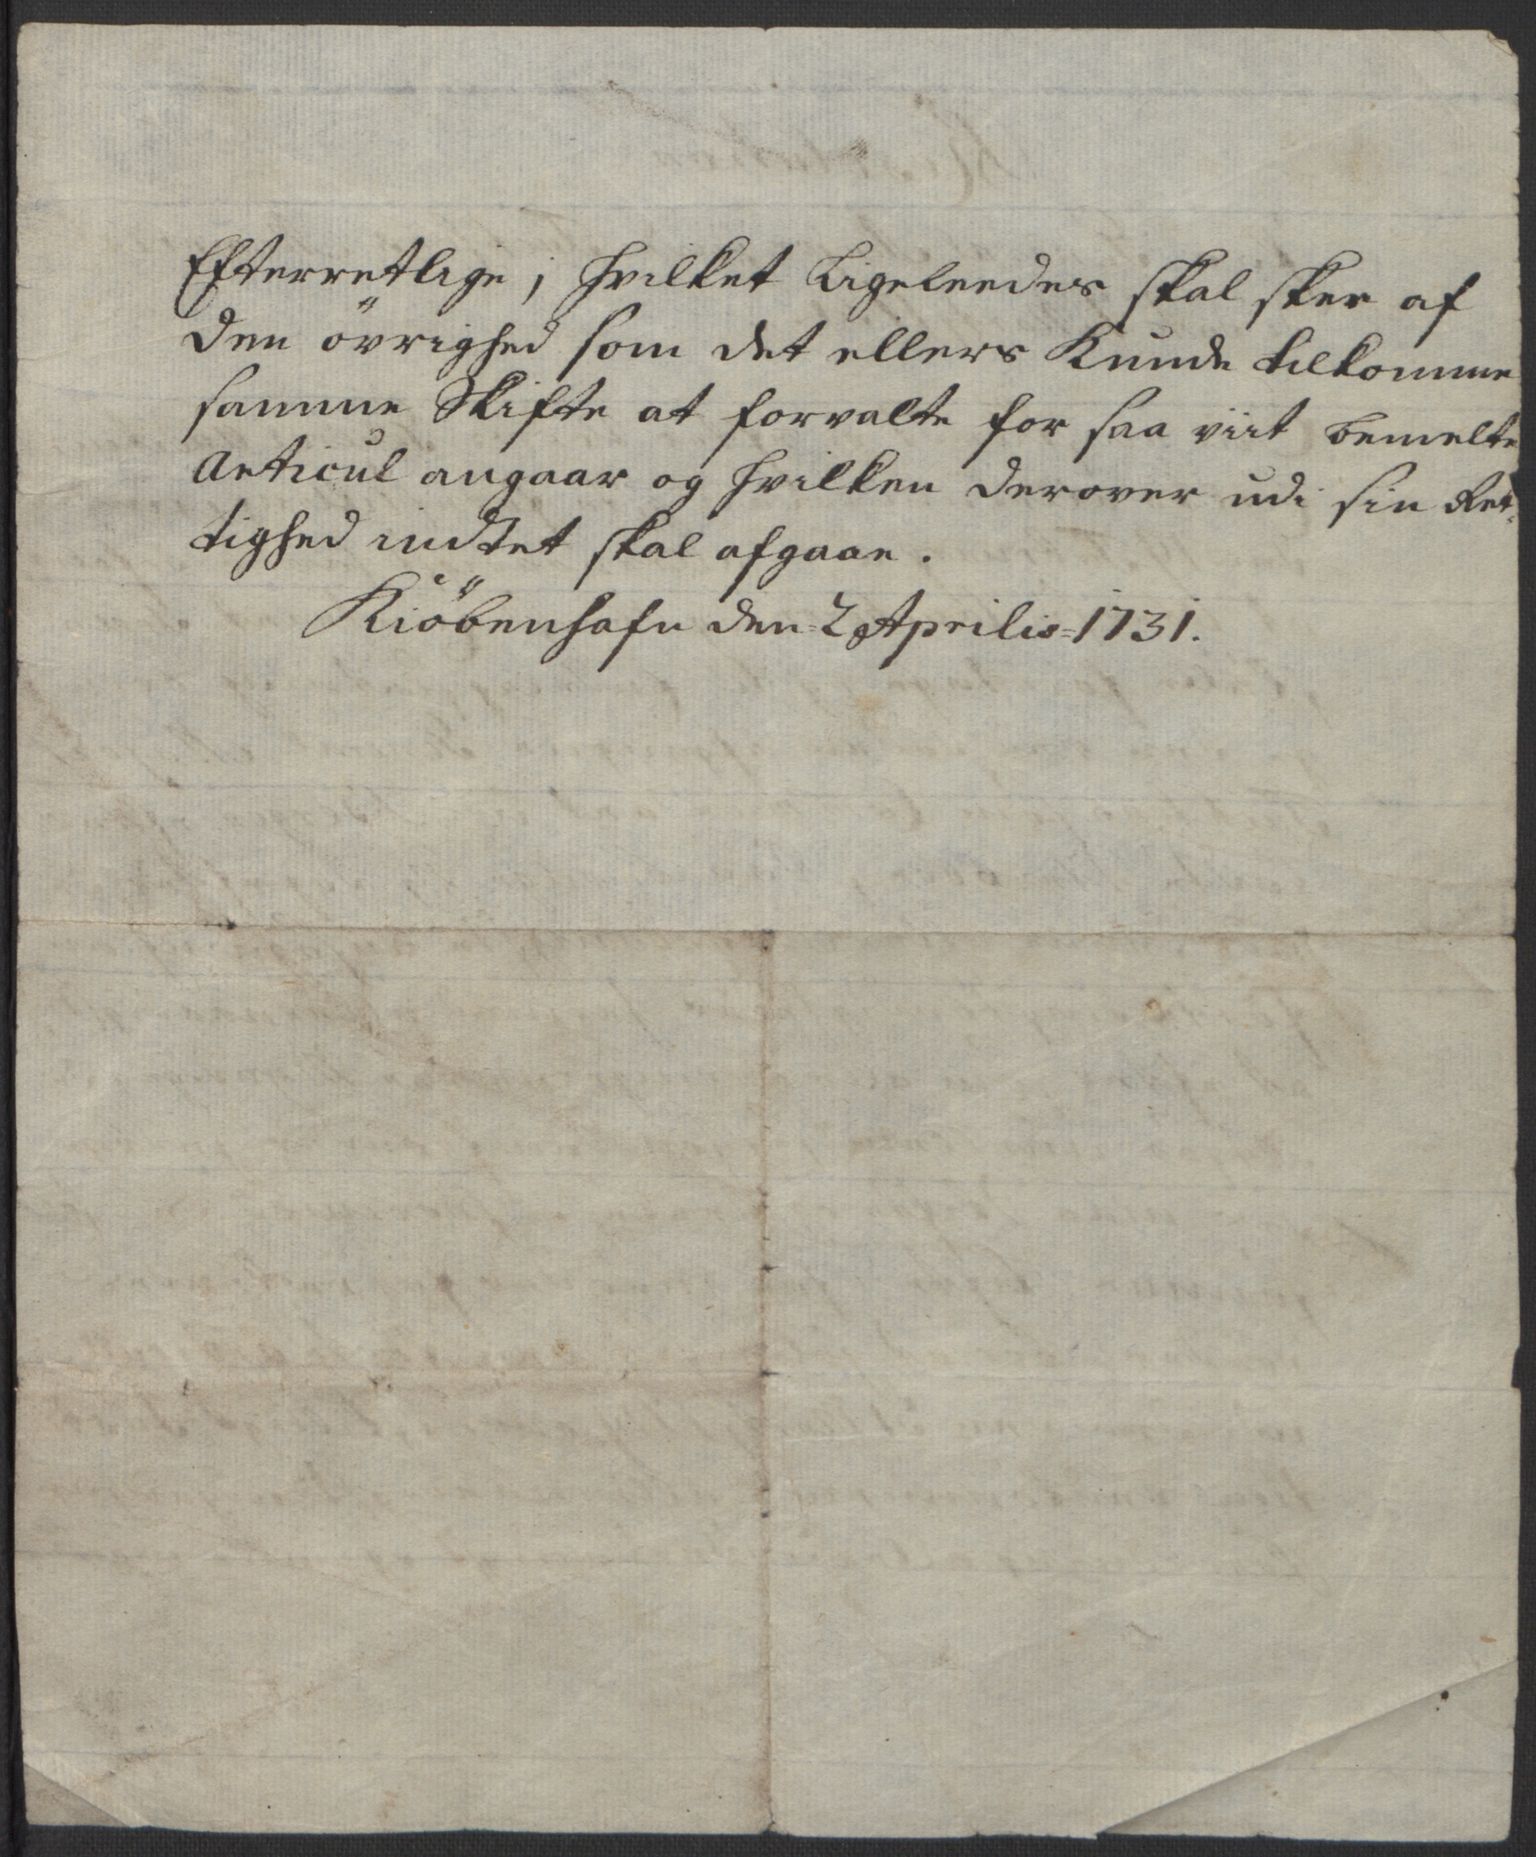 Efterretlige; hvilket Ligeleedes skal skee af
den övrighed som det ellers Kunde tilkomme
samme Skifte at forvalte for saa viit bemelte
Articul angaar og hvilken derover udi sin Ret-
tighed indtet skal afgaae.
Kiöbenhafn den 2 Aprilis 1731.